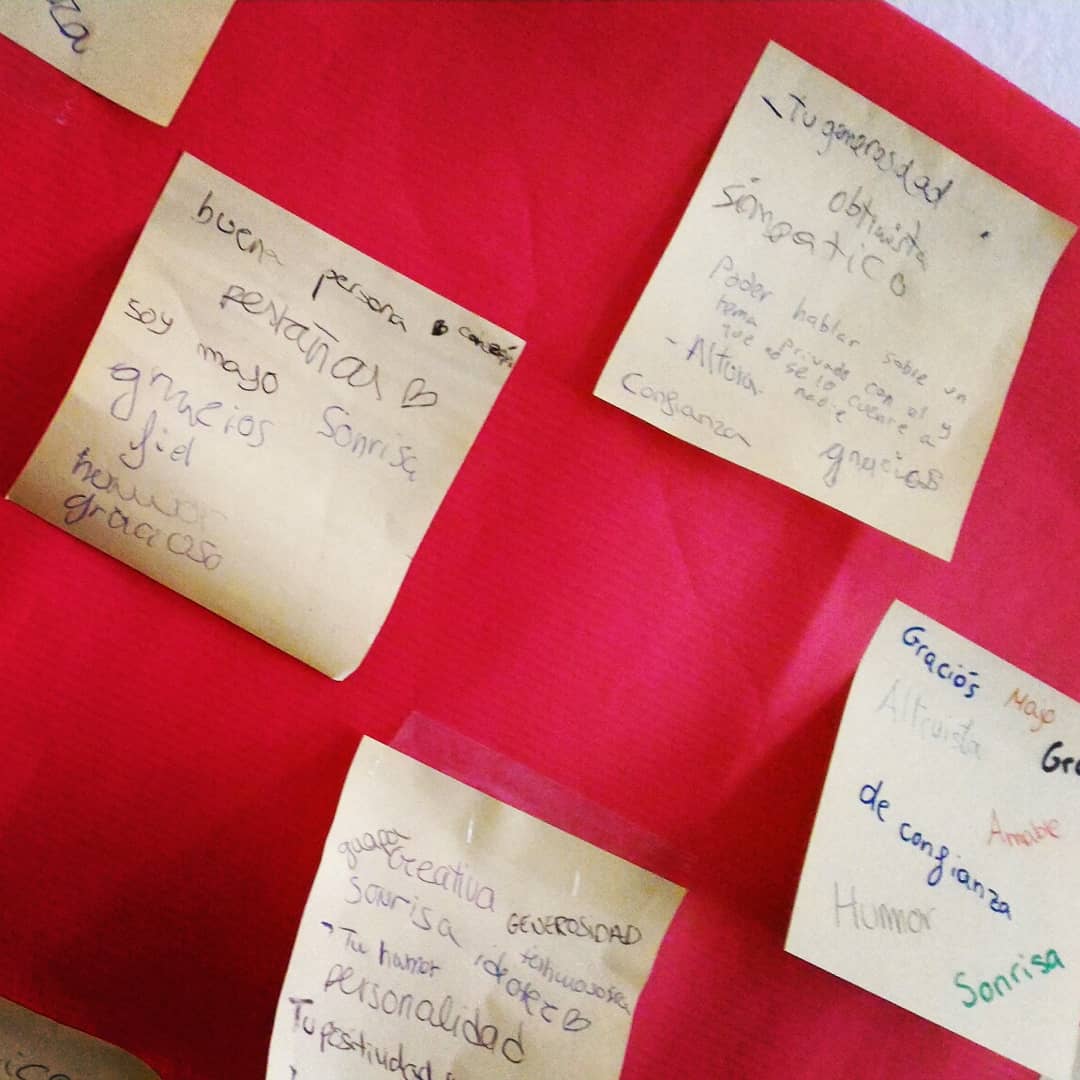 za
buena persona
pestañas
soy majo
gracios Sonrisa
fiel
humor
gracioso
Tu generosidad
obtimista
simpatico
Poder hablar sobre un
tema privado con el y
que no se lo cuente a
nadie
- Altura
Confianza
gracios
Graciós Majo
Altruista
Gra
de confianza
Amable
Humor
Sonrisa
guapa
Creativa
GENEROSIDAD
Sonrisa
Tu humor
idotez
personalidad
Tu positividad